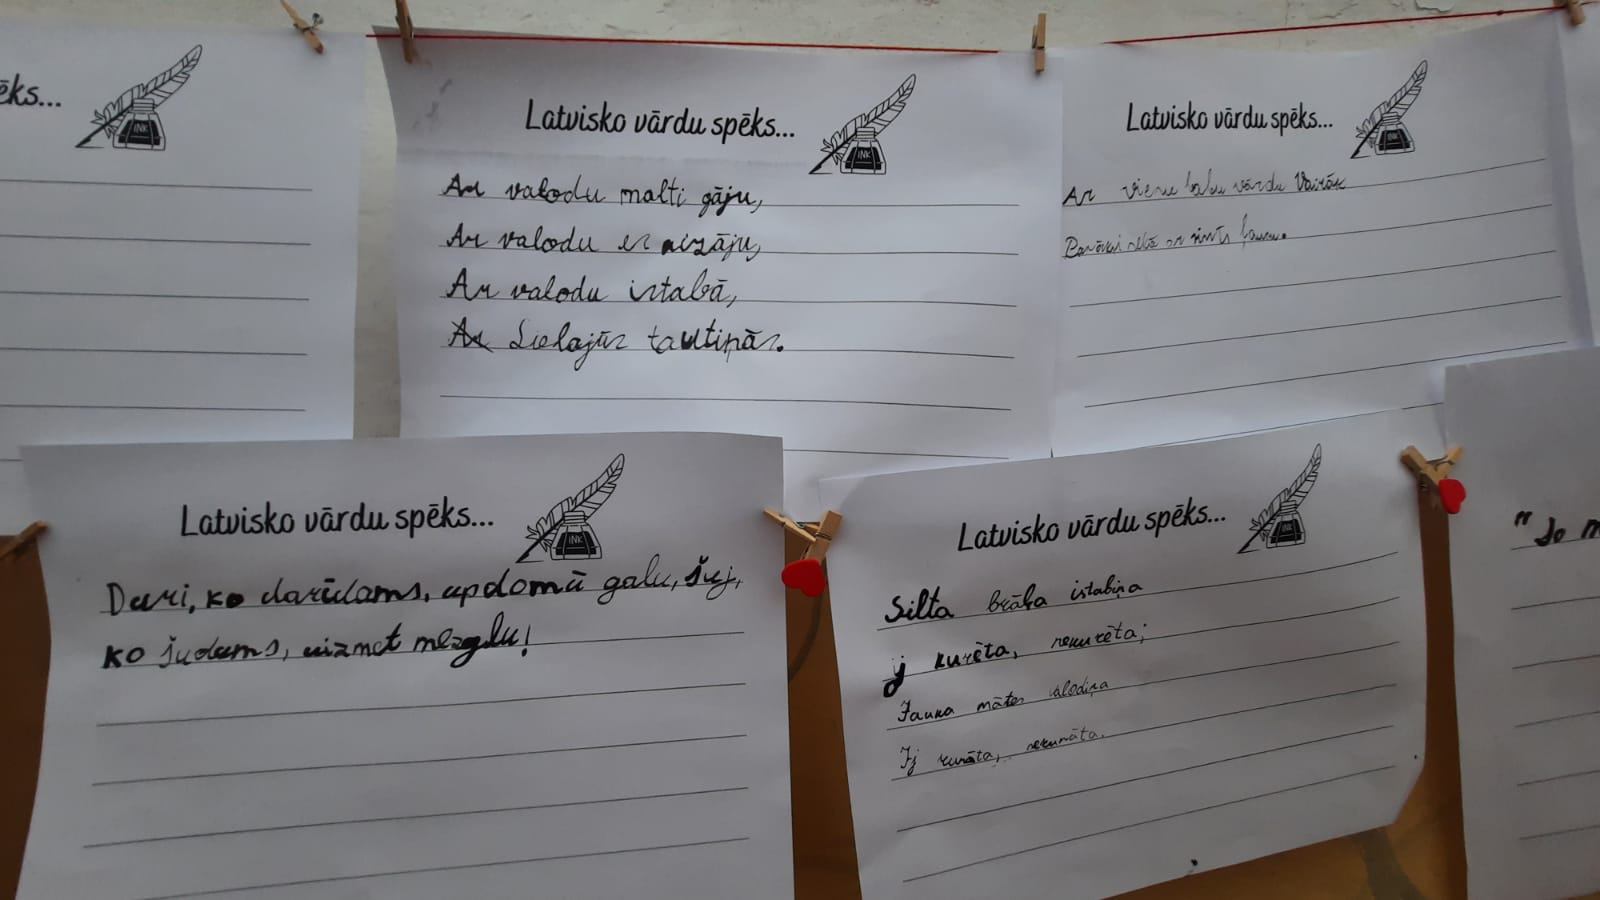 ēks...
INK
Latvisko vārdu spēks...
INK
Ar valodu malti gāju,
Ar valodu es aizāju,
Ar valodu istabā,
Ar Sielajūs tautiņās.
Latvisko vārdu spēks...
INK
Ar vienu labu vārdu Vairāk
ar
Latvisko vārdu spēks...
INK
Dari, ko darīdams, apdomā galu, šuj,
ko šūdams, aizmet mezglu!
Latvisko vārdu spēks...
INK
Silta brāļa istabiņa
Ij kurēta, nekurēta;
Jauka mātes valodiņa
Ij runāta, nerunāta.
"Jo m